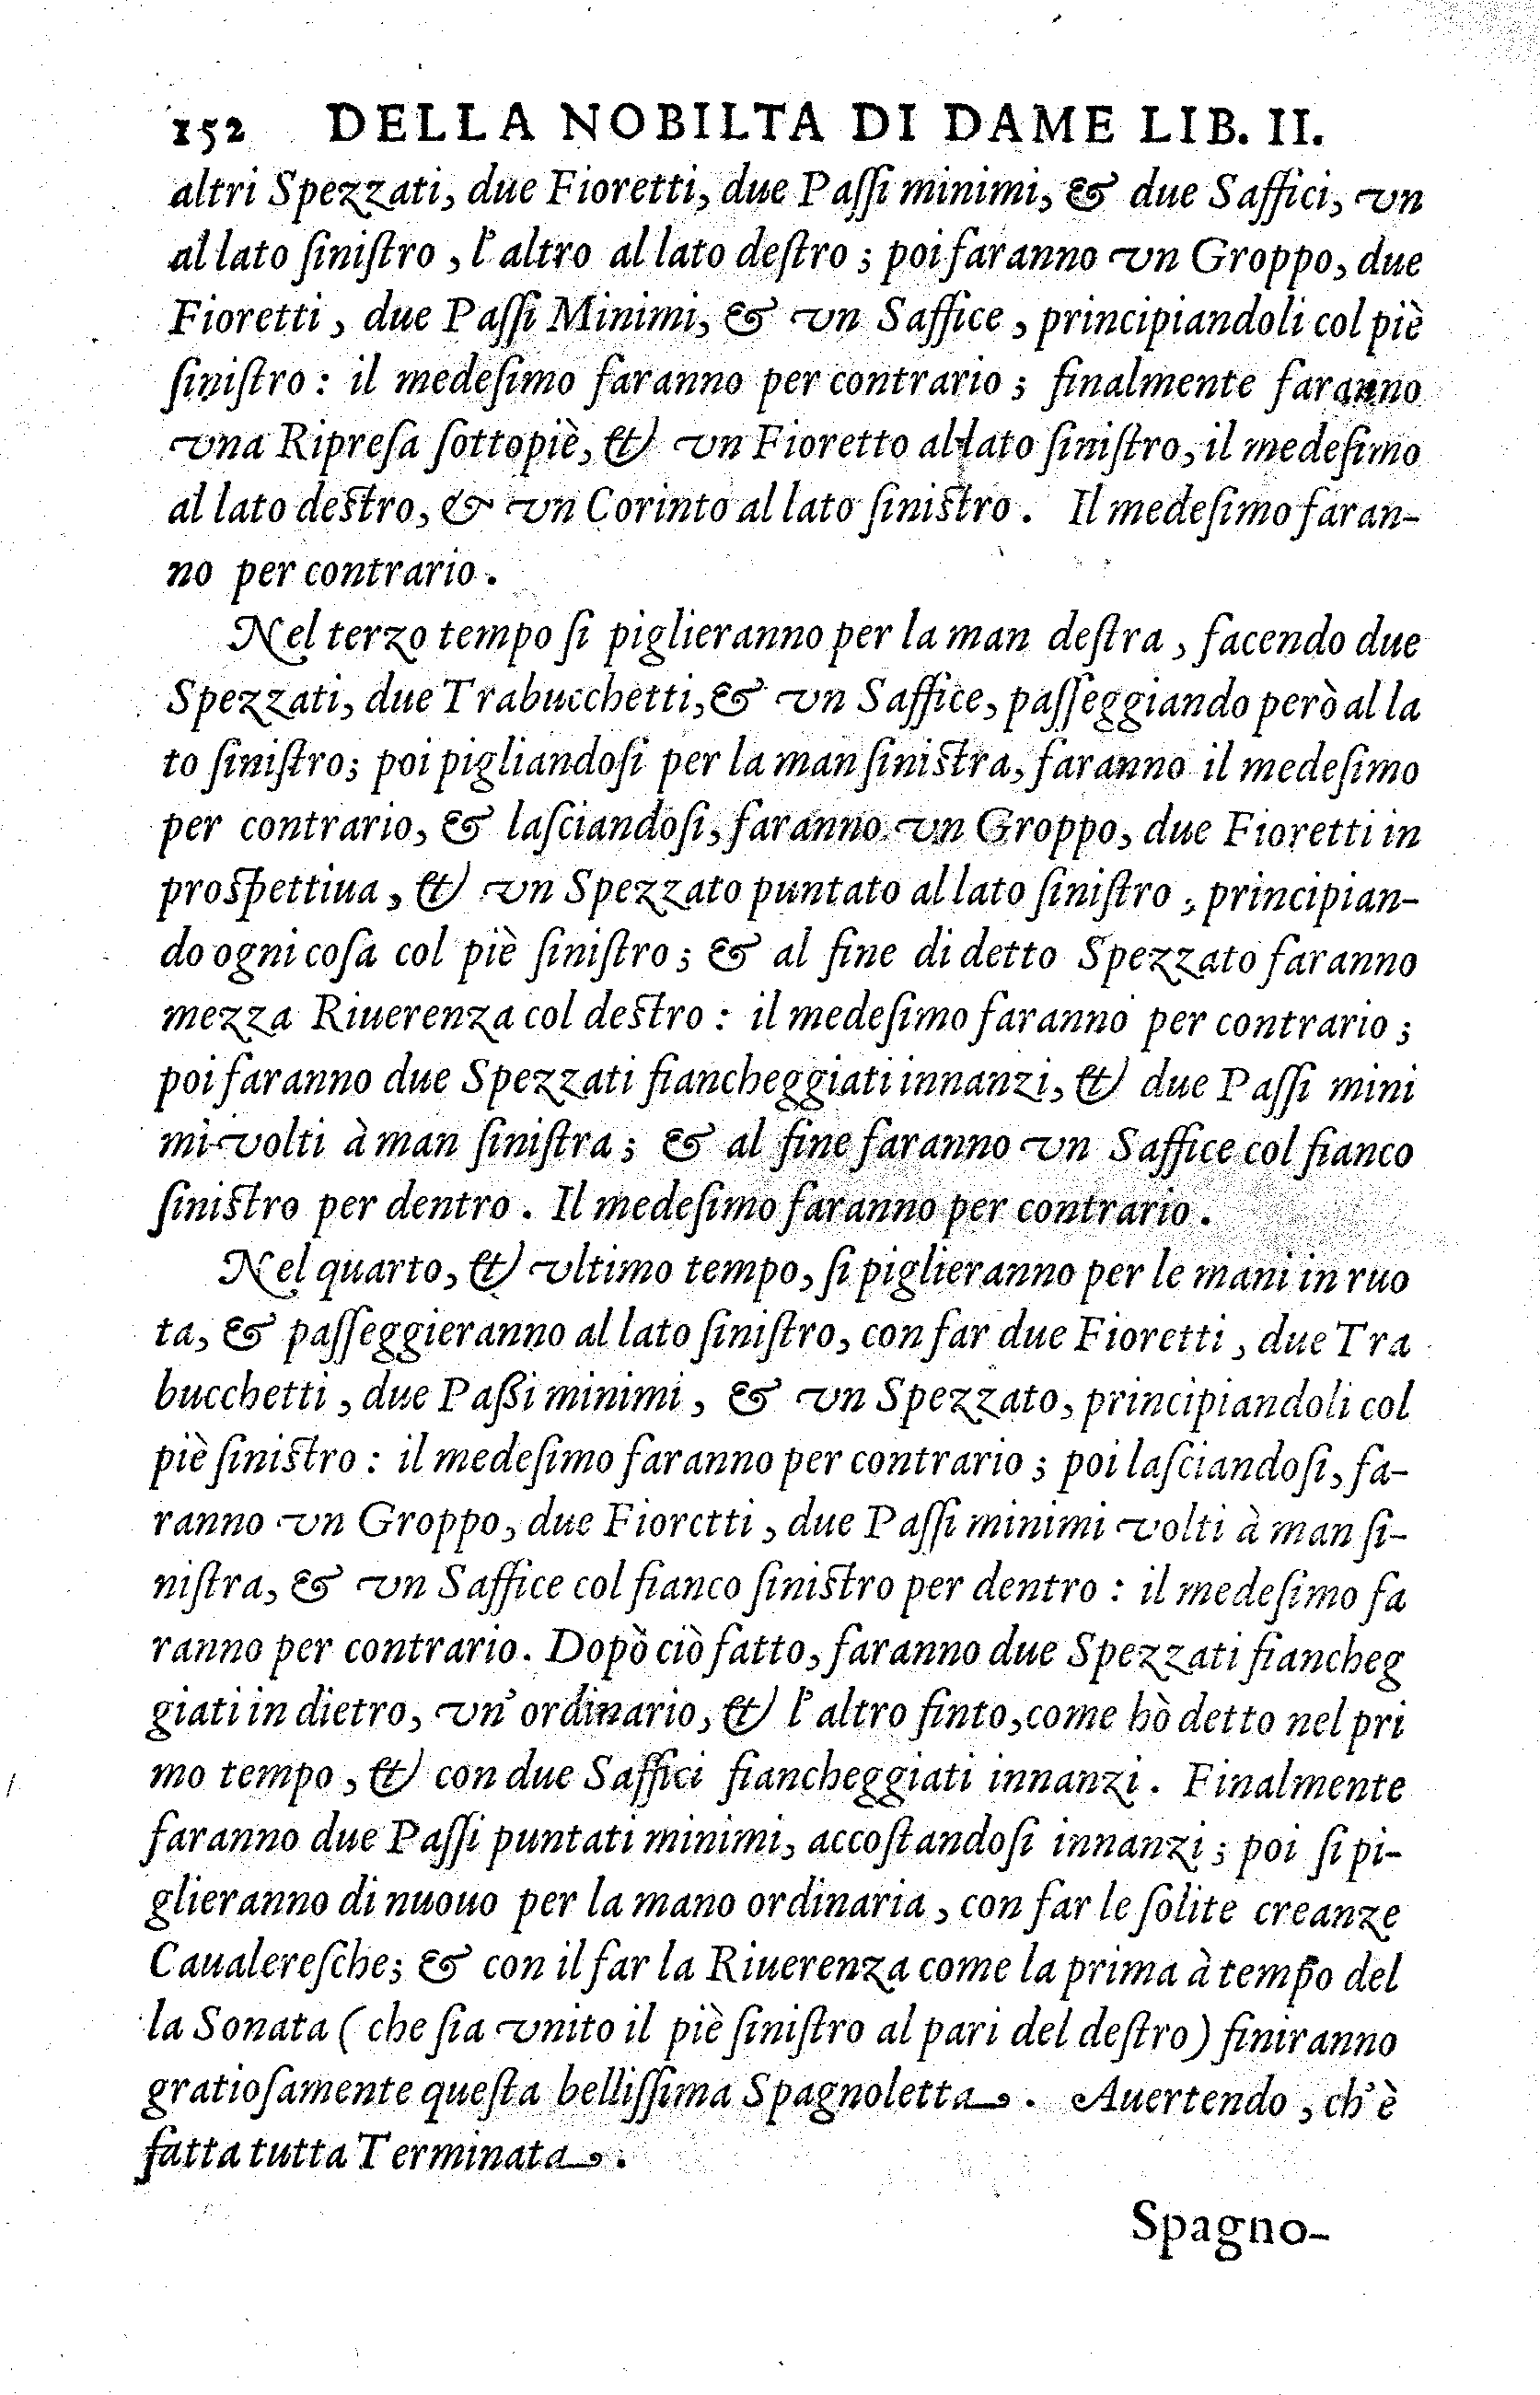 152 DELLA NOBILTA DI DAME LIB. II.
altri Spezzati, due Fioretti, due Paſſi minimi, & due Saffici, vn
al lato ſiniſtro, l'altro al lato deſtro; poi faranno vn Groppo, due
Fioretti, due Paſſi Minimi, & vn Saffice, principiandoli col piè
ſiniſtro: il medeſimo faranno per contrario; finalmente faranno
vna Ripreſa ſottopiè, & vn Fioretto al lato ſiniſtro, il medeſimo
al lato deſtro, & vn Corinto al lato ſiniſtro. Il medeſimo faran-
no per contrario.
Nel terzo tempo ſi piglieranno per la man deſtra, facendo due
Spezzati, due Trabucchetti, & vn Saffice, paſſeggiando però al la
to ſiniſtro; poi pigliandoſi per la man ſiniſtra, faranno il medeſimo
per contrario, & laſciandoſi, faranno vn Groppo, due Fioretti in
proſpettiua, & vn Spezzato puntato al lato ſiniſtro, principian-
do ogni coſa col piè ſiniſtro; & al fine di detto Spezzato faranno
mezza Riuerenza col deſtro: il medeſimo faranno per contrario;
poi faranno due Spezzati fiancheggiati innanzi, & due Paſſi mini
mi volti à man ſiniſtra; & al fine faranno vn Saffice col fianco
ſiniſtro per dentro. Il medeſimo faranno per contrario.
Nel quarto, & vltimo tempo, ſi piglieranno per le mani in ruo
ta, & paſſeggieranno al lato ſiniſtro, con far due Fioretti, due Tra
bucchetti, due Paßi minimi, & vn Spezzato, principiandoli col
piè ſiniſtro: il medeſimo faranno per contrario; poi laſciandoſi, fa-
ranno vn Groppo, due Fiorctti, due Paſſi minimi volti à man ſi-
niſtra, & vn Saffice col fianco ſiniſtro per dentro: il medeſimo fa
ranno per contrario. Dopò ciò fatto, faranno due Spezzati fiancheg
giati in dietro, vn' ordinario, & l'altro finto, come hò detto nel pri
mo tempo, & con due Saffici fiancheggiati innanzi. Finalmente
faranno due Paſſi puntati minimi, accoſtandoſi innanzi; poi ſi pi-
glieranno di nuouo per la mano ordinaria, con far le ſolite creanze
Caualereſche; & con il far la Riuerenza come la prima à tempo del
la Sonata (che ſia vnito il piè ſiniſtro al pari del deſtro) finiranno
gratioſamente queſta belliſſima Spagnoletta. Auertendo, ch'è
fatta tutta Terminata.
Spagno-